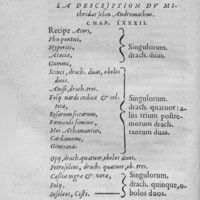 LA DESCRIPTION DV MI-
thridat selon Andromachus.
CHAP. LXXXII.
Recipe Acori,
Phu pontici,
Hyperici,
Acaciæ,
Gummi,
Singulorum.
drach. duas.
Scinci, drach. duas, obolos
duos.
Anisi, drach. tres.
Foly nardi indicæ & cel-
ticæ,
Rosarum siccarum,
Fœniculi seminis,
Meu Athamantici,
Cardamomi,
Gentianæ.
Singulorum.
drach. quatuor: a-
liis trium postre-
morum drach.
tantum duas.
Opij, drach. quatuor, obolos duos.
Petroselini, drach. quatuor, ob. tres.
Casiæ nigræ & veræ,
Polij,
Seseleos, Costi.
Singulorum.
drach. quinque, o-
bolos duos.